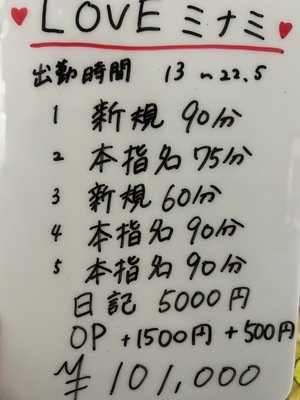 LOVE ミナミ
出勤時間 13~22.5
1 新規 90分
2 本指名 75分
3 新規 60分
4 本指名 90分
5 本指名 90分
日記 5000円
OP +1500円 +500円
¥101,000